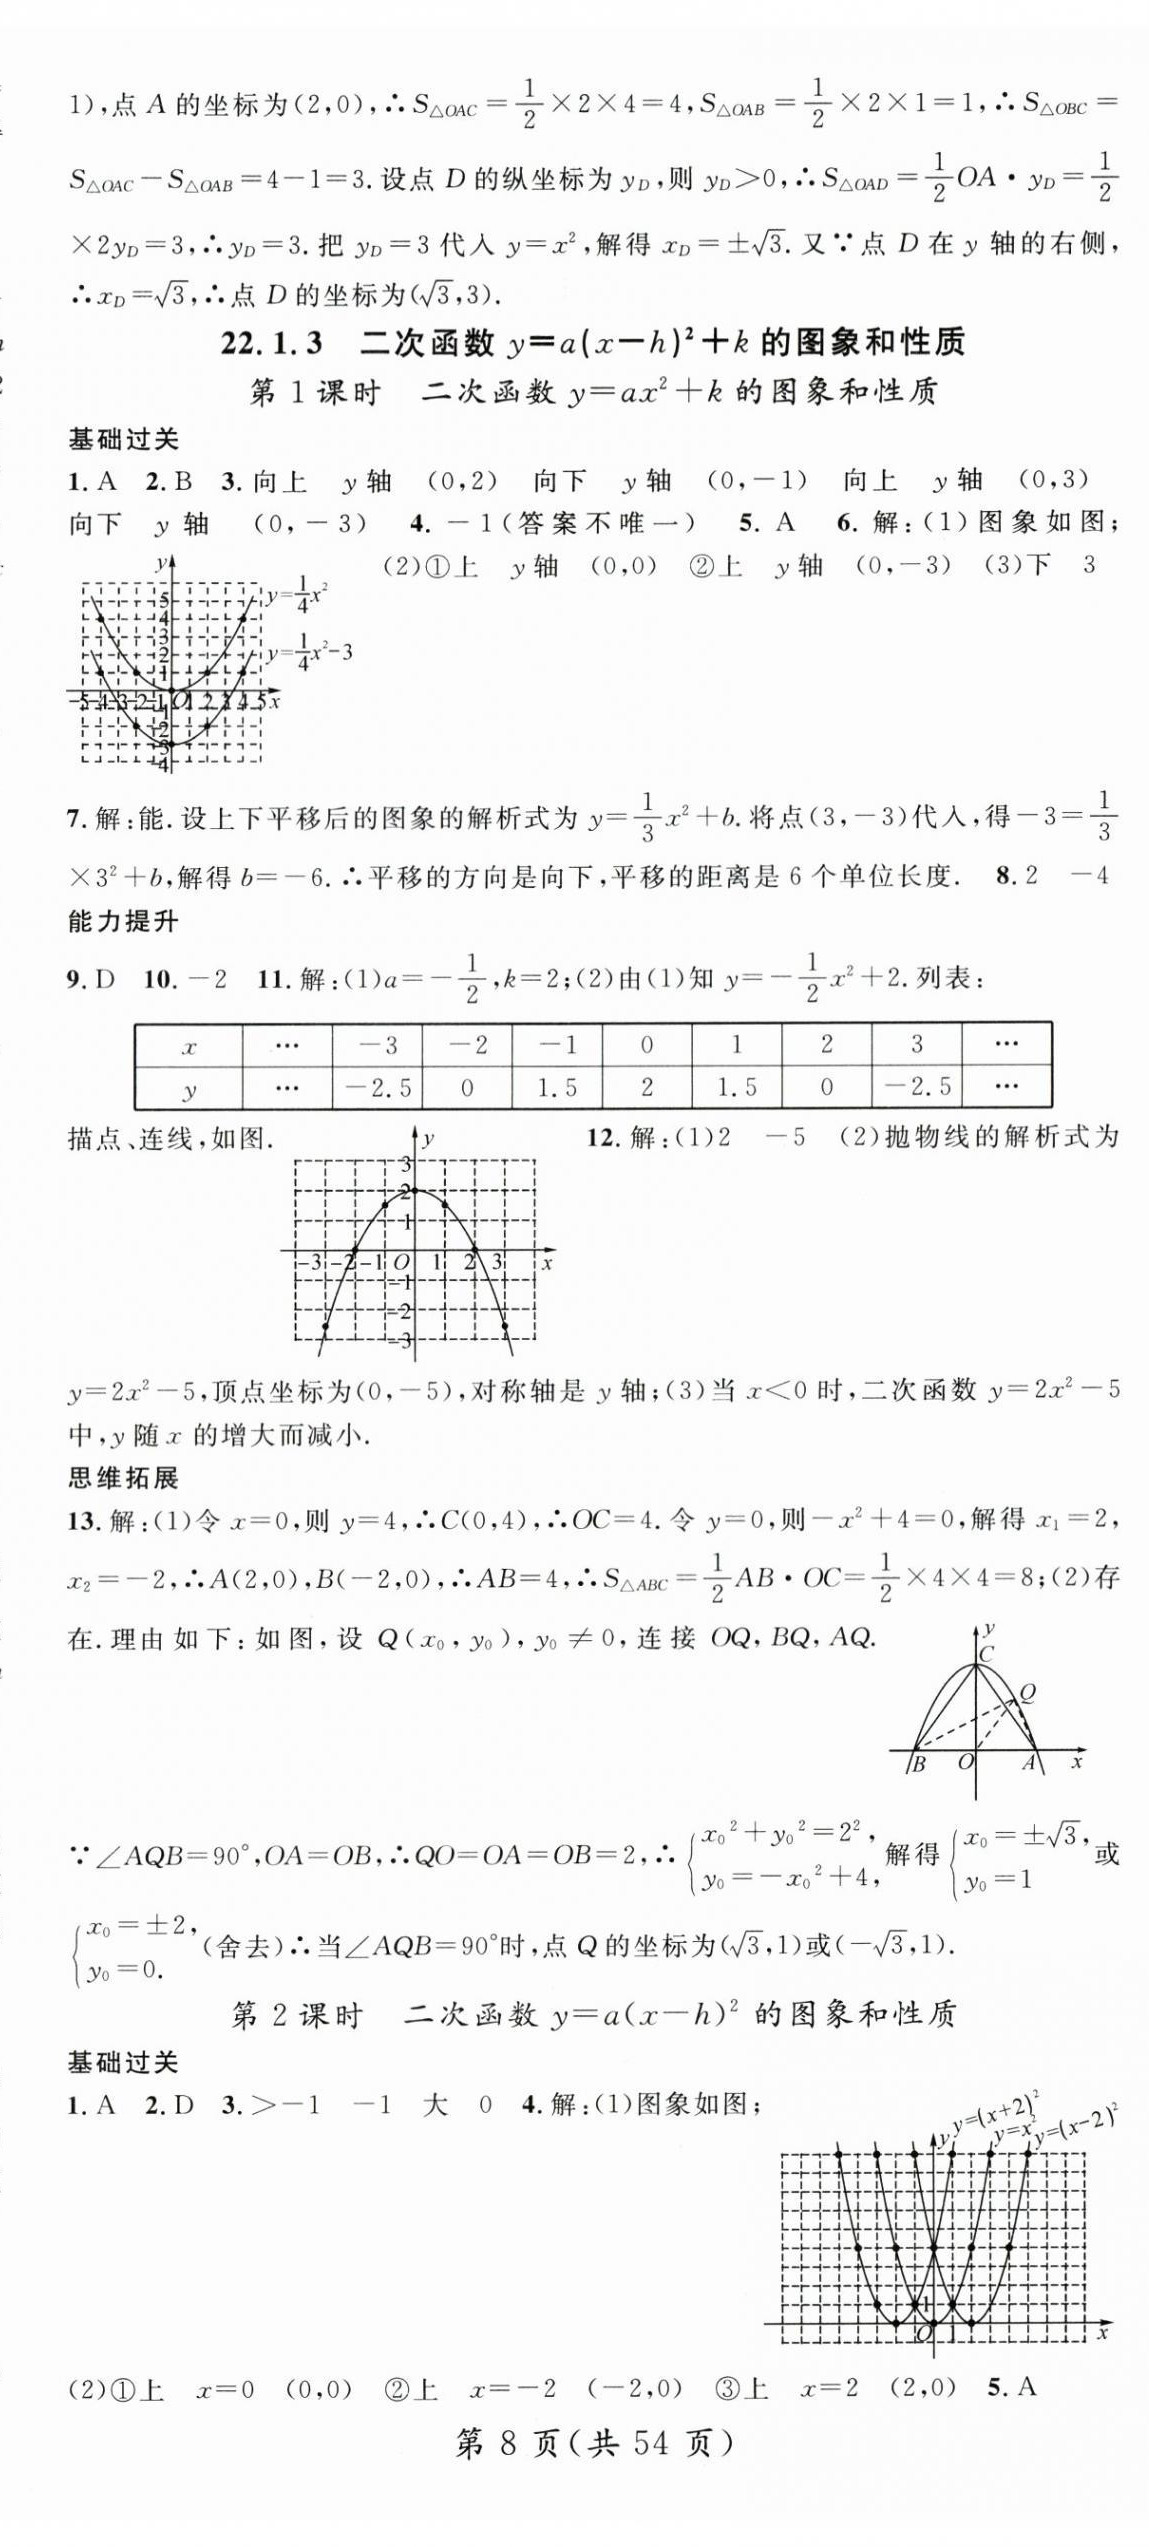 1),点 A 的坐标为(2,0),∴S△OAC=1/2×2×4=4,S△OAB=1/2×2×1=1,∴S△OBC=
S△OAC-S△OAB=4-1=3.设点 D 的纵坐标为 yD,则 yD>0,∴S△OAD=1/2OA·yD=1/2
×2yD=3,∴yD=3.把 yD=3 代入 y=x²,解得 xD=±√3.又∵点 D 在 y 轴的右侧,
∴xD=√3,∴点 D 的坐标为(√3,3).
22.1.3 二次函数 y=a(x-h)²+k 的图象和性质
第 1 课时 二次函数 y=ax²+k 的图象和性质
基础过关
1. A 2. B 3. 向上 y 轴 (0,2) 向下 y 轴 (0,-1) 向上 y 轴 (0,3)
向下 y 轴 (0,-3) 4. -1(答案不唯一) 5. A 6. 解:(1)图象如图;
(2)①上 y 轴 (0,0) ②上 y 轴 (0,-3) (3)下 3
y
y=1/4x²
5
4
3
2
1
y=1/4x²-3
-5-4-3-2-1 O 1 2 3 4 5 x
-1
-2
-3
-4
7. 解:能.设上下平移后的图象的解析式为 y=1/3x²+b.将点(3,-3)代入,得-3=1/3
×3²+b,解得 b=-6.∴平移的方向是向下,平移的距离是 6 个单位长度. 8. 2 -4
能力提升
9. D 10. -2 11. 解:(1)a=-1/2,k=2;(2)由(1)知 y=-1/2x²+2.列表:
x … -3 -2 -1 0 1 2 3 …
y … -2.5 0 1.5 2 1.5 0 -2.5 …
描点、连线,如图. 12. 解:(1)2 -5 (2)抛物线的解析式为
y
3
2
1
-3 -2 -1 O 1 2 3 x
-1
-2
-3
y=2x²-5,顶点坐标为(0,-5),对称轴是 y 轴;(3)当 x<0 时,二次函数 y=2x²-5
中,y 随 x 的增大而减小.
思维拓展
13. 解:(1)令 x=0,则 y=4,∴C(0,4),∴OC=4.令 y=0,则-x²+4=0,解得 x₁=2,
x₂=-2,∴A(2,0),B(-2,0),∴AB=4,∴S△ABC=1/2AB·OC=1/2×4×4=8;(2)存
在.理由如下:如图,设 Q(x₀,y₀),y₀≠0,连接 OQ,BQ,AQ.
y
C
Q
B O A x
∵∠AQB=90°,OA=OB,∴QO=OA=OB=2,∴{x₀²+y₀²=2², y₀=-x₀²+4,解得{x₀=±√3, y₀=1 或
{x₀=±2, y₀=0.(舍去)∴当∠AQB=90°时,点 Q 的坐标为(√3,1)或(-√3,1).
第 2 课时 二次函数 y=a(x-h)² 的图象和性质
基础过关
1. A 2. D 3. >-1 -1 大 0 4. 解:(1)图象如图;
y y=(x+2)²
y=x²
y=(x-2)²
1
O 1 x
(2)①上 x=0 (0,0) ②上 x=-2 (-2,0) ③上 x=2 (2,0) 5. A
第 8 页(共 54 页)